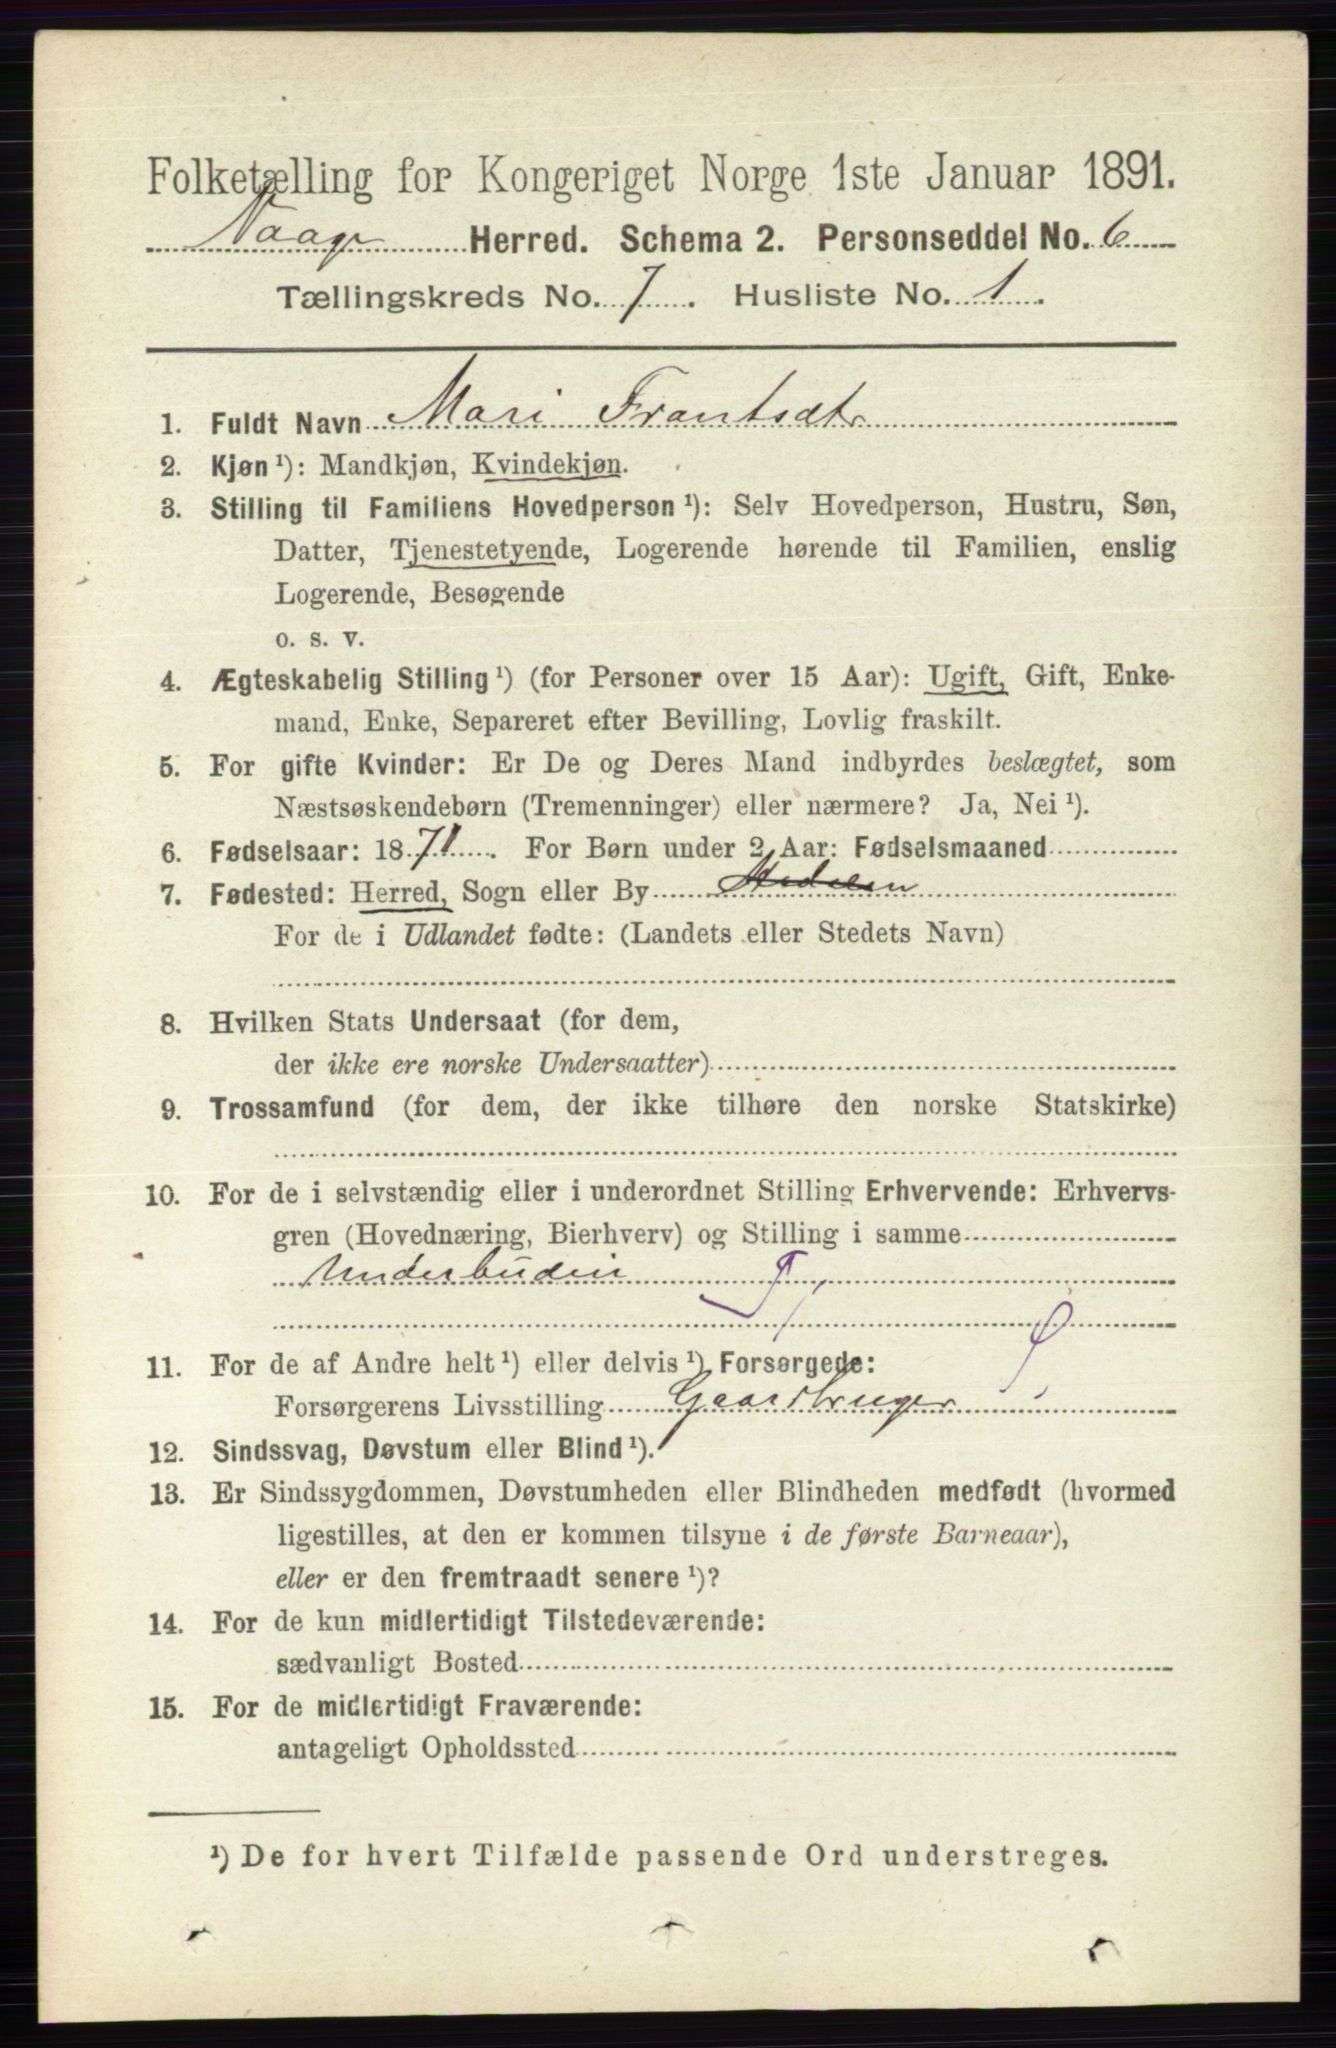 Folketælling for Kongeriget Norge 1ste Januar 1891.
Vaage Herred. Schema 2. Personseddel No. 6
Tællingskreds No. 7. Husliste No. 1.
1. Fuldt Navn Mari Frantsdtr
2. Kjøn ¹): Mandkjøn, Kvindekjøn.
3. Stilling til Familiens Hovedperson ¹): Selv Hovedperson, Hustru, Søn,
Datter, Tjenestetyende, Logerende hørende til Familien, enslig
Logerende, Besøgende
o. s. v.
4. Ægteskabelig Stilling ¹) (for Personer over 15 Aar): Ugift, Gift, Enke-
mand, Enke, Separeret efter Bevilling, Lovlig fraskilt.
5. For gifte Kvinder: Er De og Deres Mand indbyrdes beslægtet, som
Næstsøskendebørn (Tremenninger) eller nærmere? Ja, Nei ¹).
6. Fødselsaar: 1871. For Børn under 2 Aar: Fødselsmaaned
7. Fødested: Herred, Sogn eller By
For de i Udlandet fødte: (Landets eller Stedets Navn)
8. Hvilken Stats Undersaat (for dem,
der ikke ere norske Undersaatter)
9. Trossamfund (for dem, der ikke tilhøre den norske Statskirke)
10. For de i selvstændig eller i underordnet Stilling Erhvervende: Erhvervs-
gren (Hovednæring, Bierhverv) og Stilling i samme
Underbudeie T
11. For de af Andre helt ¹) eller delvis ¹) Forsørgede:
Forsørgerens Livsstilling Gaardbruger
12. Sindssvag, Døvstum eller Blind ¹).
13. Er Sindssygdommen, Døvstumheden eller Blindheden medfødt (hvormed
ligestilles, at den er kommen tilsyne i de første Barneaar),
eller er den fremtraadt senere ¹)?
14. For de kun midlertidigt Tilstedeværende:
sædvanligt Bosted
15. For de midlertidigt Fraværende:
antageligt Opholdssted
¹) De for hvert Tilfælde passende Ord understreges.